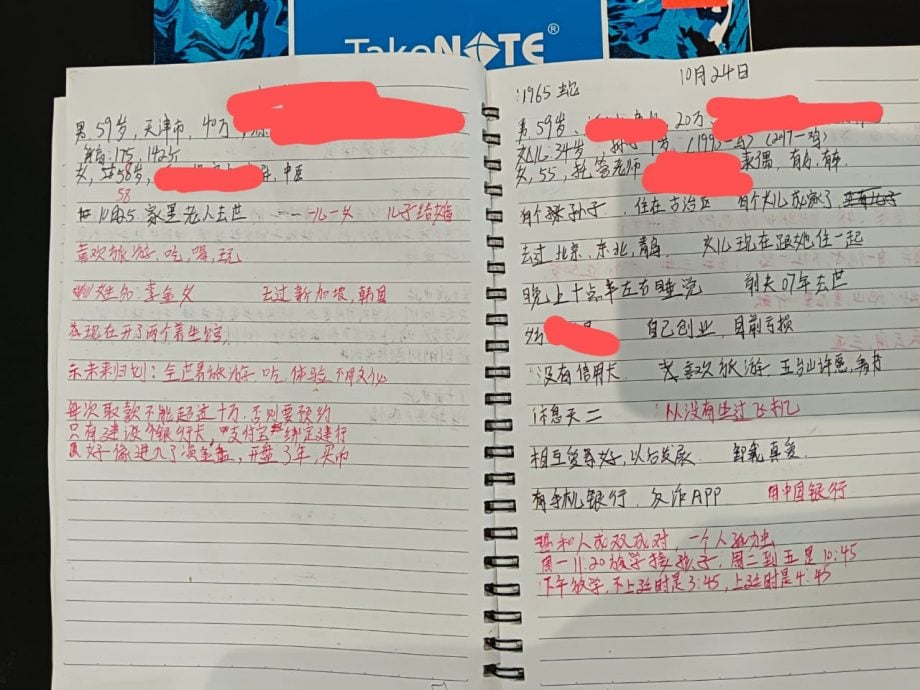 TakeNOTE®
男.59岁,天津市,40万
身高:175,142斤
女,58岁, 中医
58
10月5 家里老人去世 一儿一女 儿子结婚
喜欢旅游,吃,喝,玩
姓名:李金文 去过新加坡,韩国
现在开了两个养生馆,
未来归划:全世界旅游 吃.体验不同文化
每次取款不能超过十万,否则要预约
只有建设银行卡,支付宝绑定建行
好像进入了资金盘,开盘3年,买币
10月24日
:1965 蛇
男.59岁、 20万
女儿:34岁, 孙子7岁, (1991-鸡) (2017-鸡)
女,55, 托管老师 丧偶,有房,有车.
有个孙子,住在古冶区 有个女儿成家了
去过北京,东北,青岛 女儿现在跟她住一起
晚上十点半左右睡觉 前夫07年去世
自己创业,目前亏损
没有信用卡. 喜欢旅游 五台山许愿,
休息天二 从没有坐过飞机
相互爱系好,以后发展. 卸载真爱.
有手机银行,反诈APP 用中国银行
想和人成双成对 一个人孤力
周一11:20放学接孩子,周二到五是10:45
下午放学,不上延时是3:45,上延时是4:45